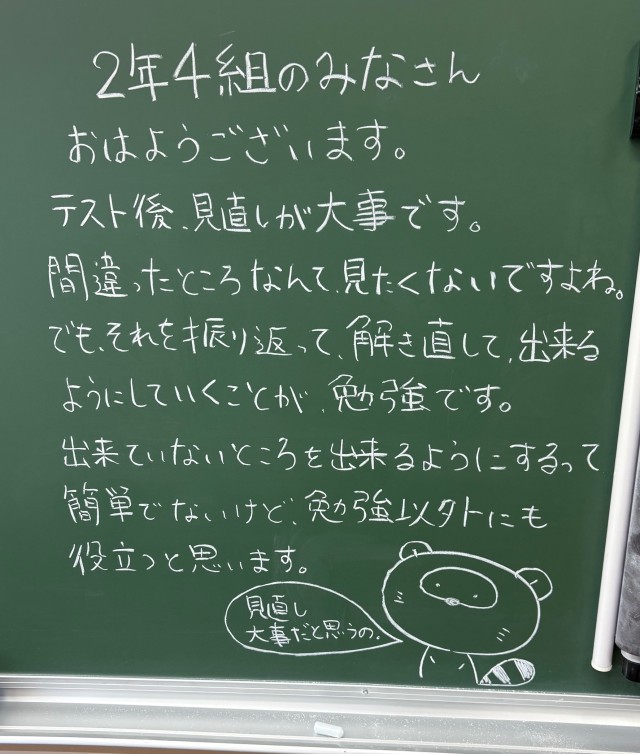 2年4組のみなさん
おはようございます。
テスト後、見直しが大事です。
間違ったところなんて、見たくないですよね。
でも、それを振り返って、解き直して、出来る
ようにしていくことが、勉強です。
出来ていないところを出来るようにするって
簡単でないけど、勉強以外にも
役立つと思います。
見直し
大事だと思うの。